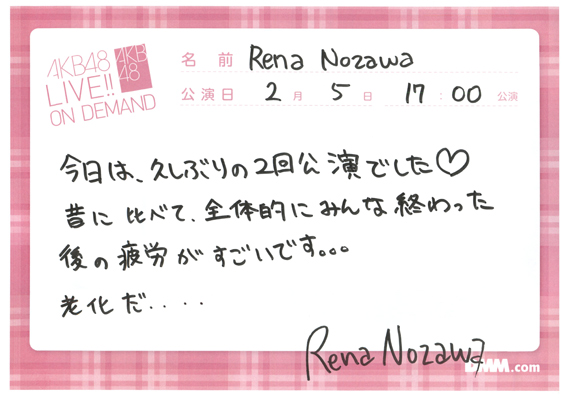 AKB48
LIVE!!
ON DEMAND
AKB
48
名前 Rena Nozawa
公演日 2月 5日 17:00 公演
今日は、久しぶりの2回公演でした♡
昔に比べて、全体的にみんな終わった
後の疲労がすごいです。。。
老化だ....
Rena Nozawa
DMM.com